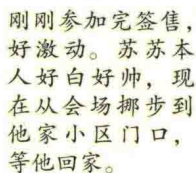 刚刚参加完签售，
好激动。苏苏本
人好白好帅，现
在从会场挪步到
他家小区门口，
等他回家。